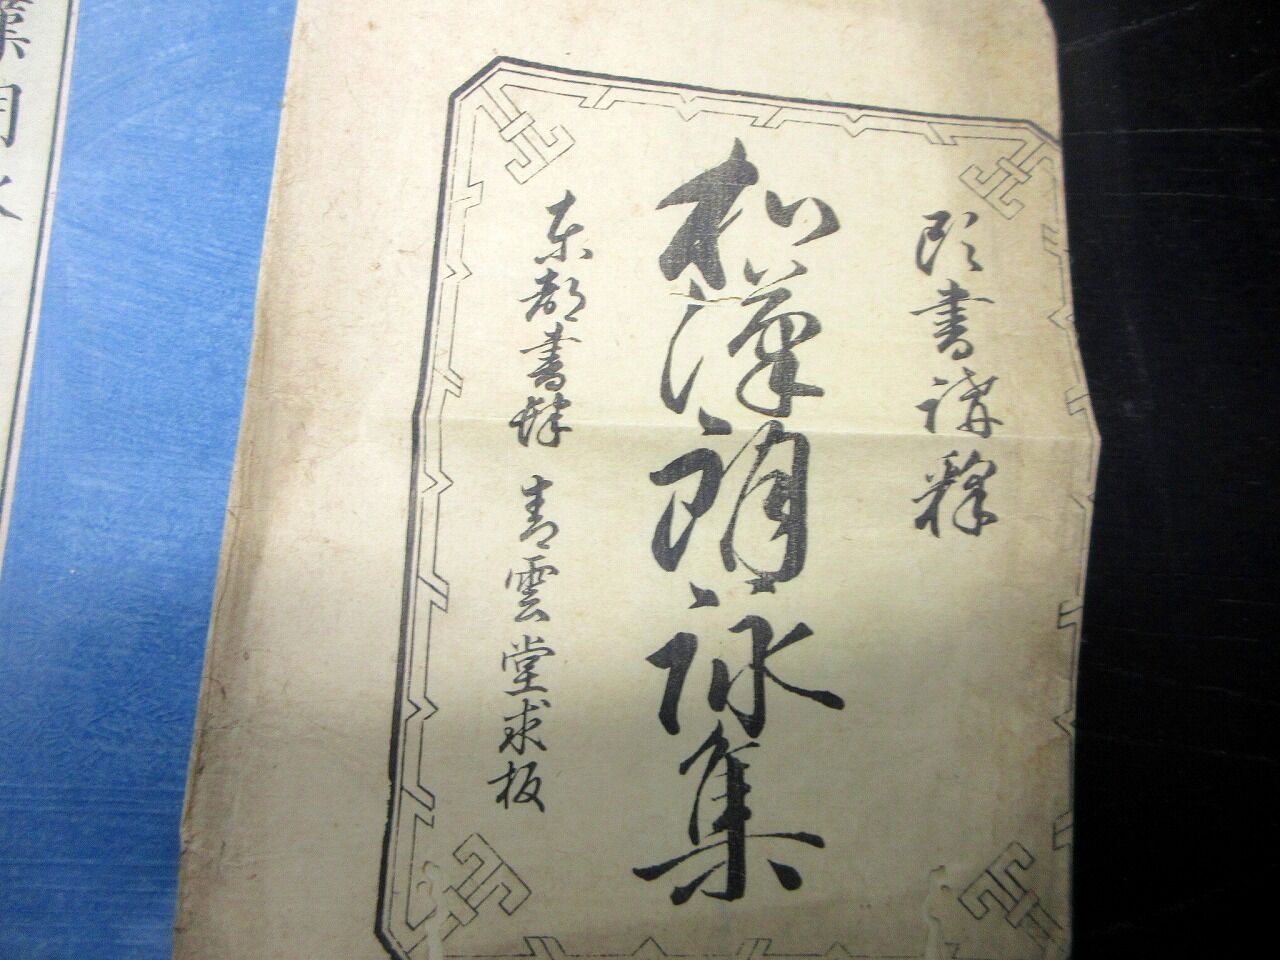 頭書講釋
和漢朗詠集
東都書肆 青雲堂求板
漢朗詠